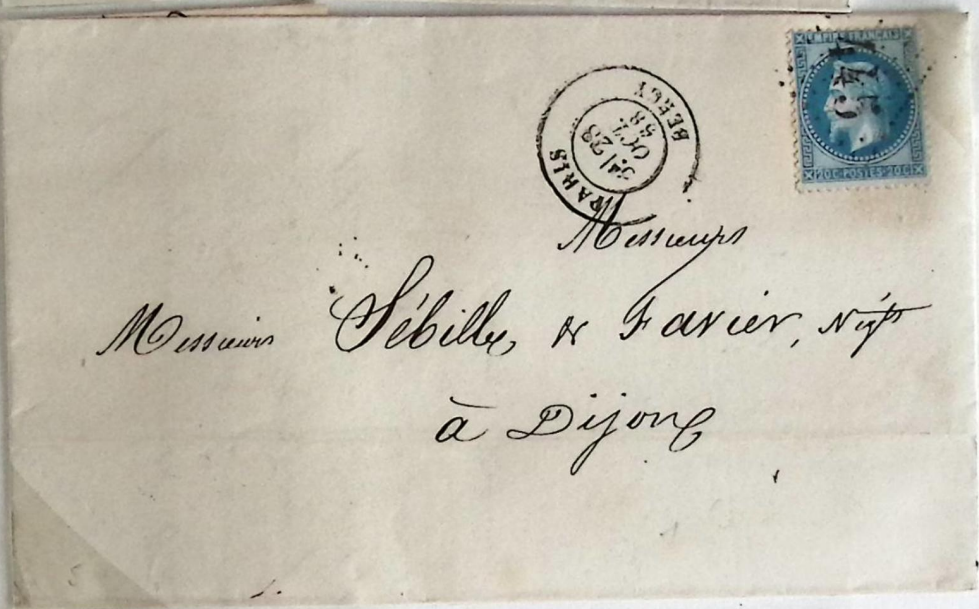 EMPIRE FRANCAIS
20C POSTES 20C
PARIS
BERCY
28
OCT
68
Messieurs
Messieurs Sébille & Favier, Nigts
à Dijon